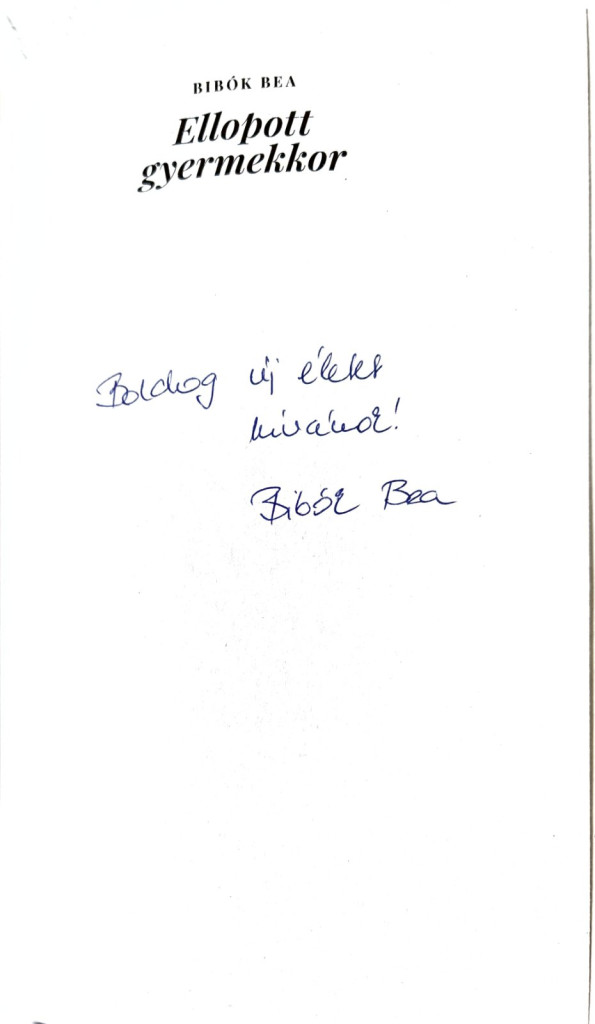 BIBÓK BEA
Ellopott
gyermekkor
Boldog új életet
kívánok!
Bibók Bea